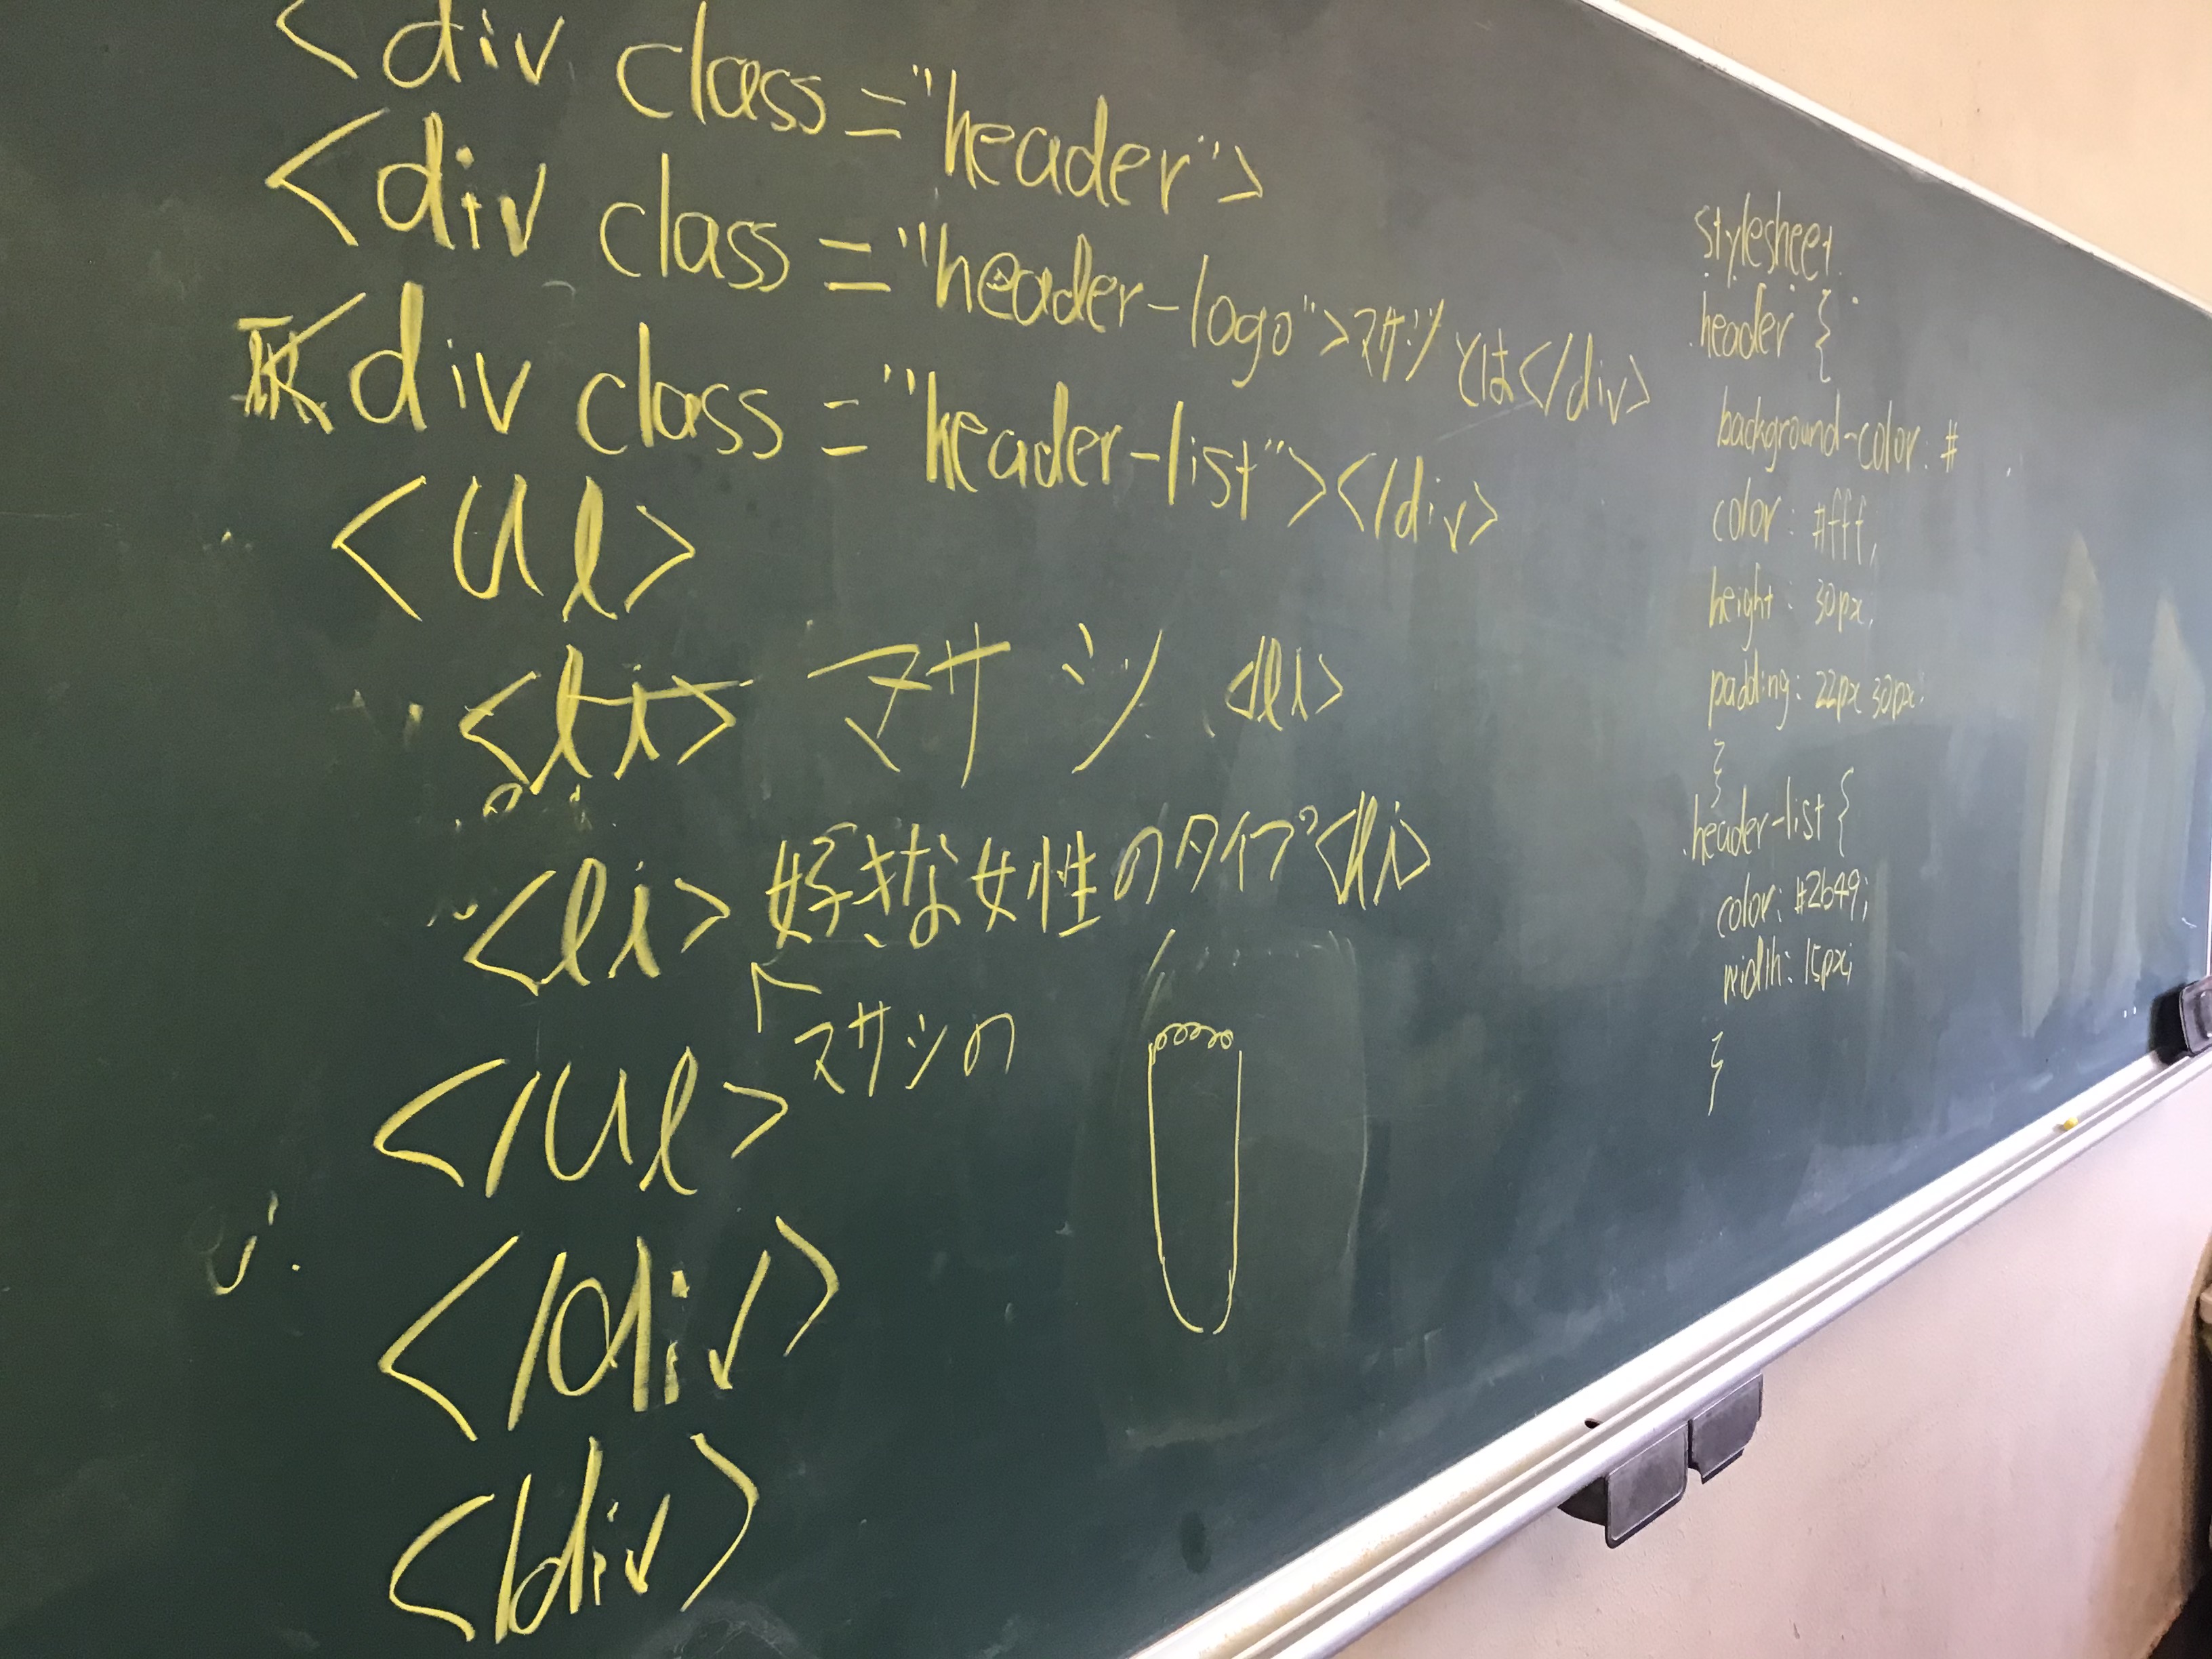 <div class="header">
<div class="header-logo">マサシとは</div>
<div class="header-list"></div>
<ul>
<li> マサシ <li>
<li> 好きな女性のタイプ <li>
マサシの
</ul>
</div>
</div>
stylesheet
.header {
background-color: #
color: #fff;
height: 30px;
padding: 22px 30px;
}
.header-list {
color: #2b49;
width: 15px;
}